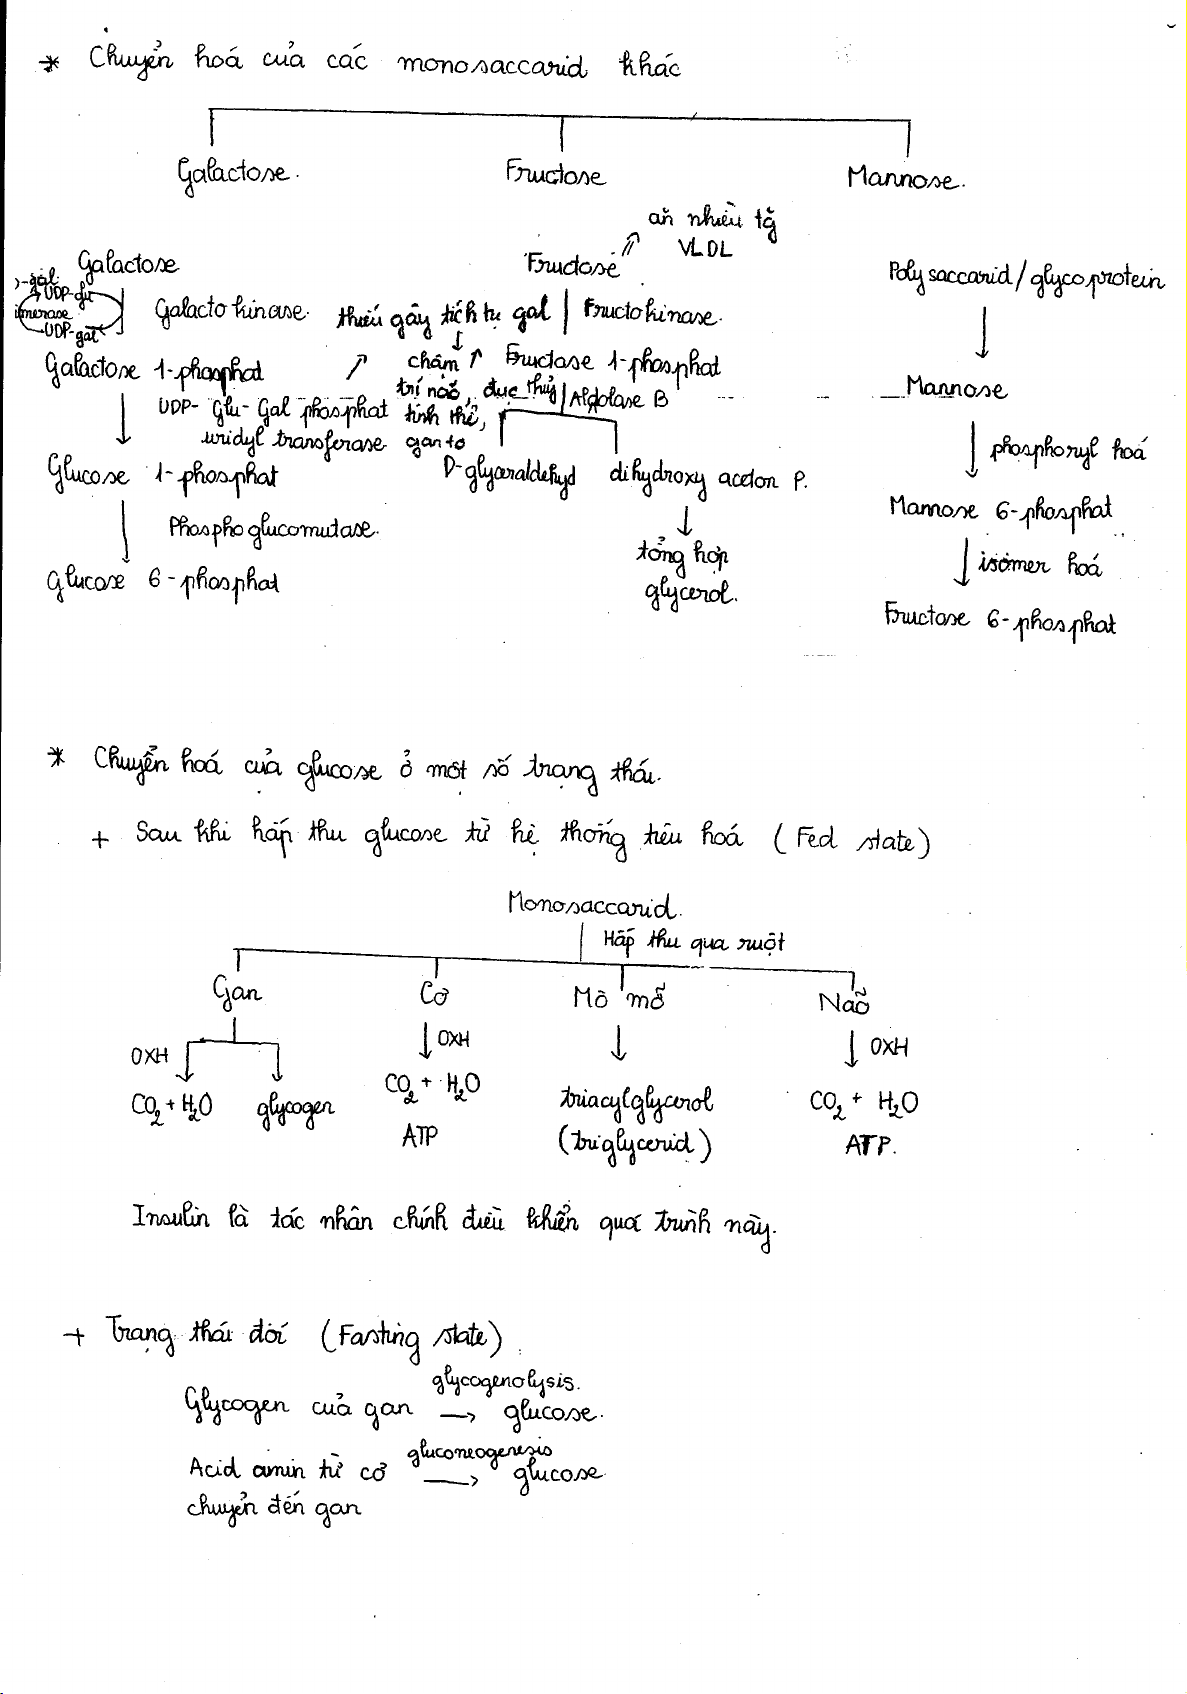 * Chuyển hoá của các monosaccarid khác
Galactose.
Fructose
Mannose.
Galactose
UDP-glu
UDP-gal
Galactokinase.
Galactose 1-phosphat
UDP-Glu-Gal phosphat
uridyl transferase
Glucose 1-phosphat
Phosphoglucomutase.
Glucose 6-phosphat
thiếu gây tích tụ gal
↓
chậm ↑
trí não, đục thuỷ
tinh thể,
gan to
ăn nhiều tg
VLDL
Fructose
Fructokinase.
Fructose 1-phosphat
Aldolase B
D-glyceraldehyd
dihydroxy aceton P.
↓
tổng hợp
glycerol.
Polysaccarid/glycoprotein
↓
Mannose
↓ phosphoryl hoá
Mannose 6-phosphat
↓ isomer hoá
Fructose 6-phosphat
* Chuyển hoá của glucose ở một số trạng thái.
+ Sau khi hấp thu glucose từ hệ thống tiêu hoá (Fed state)
Monosaccarid.
Hấp thu qua ruột
Gan
Cơ
Mô mỡ
Não
OXH
↓ OXH
↓
↓ OXH
CO2 + H2O
glycogen
CO2 + H2O
ATP
triacylglycerol
(triglycerid)
CO2 + H2O
ATP.
Insulin là tác nhân chính điều khiển quá trình này.
+ Trạng thái đói (Fasting state)
glycogenolysis.
Glycogen của gan → glucose.
gluconeogenesis
Acid amin từ cơ → glucose
chuyển đến gan